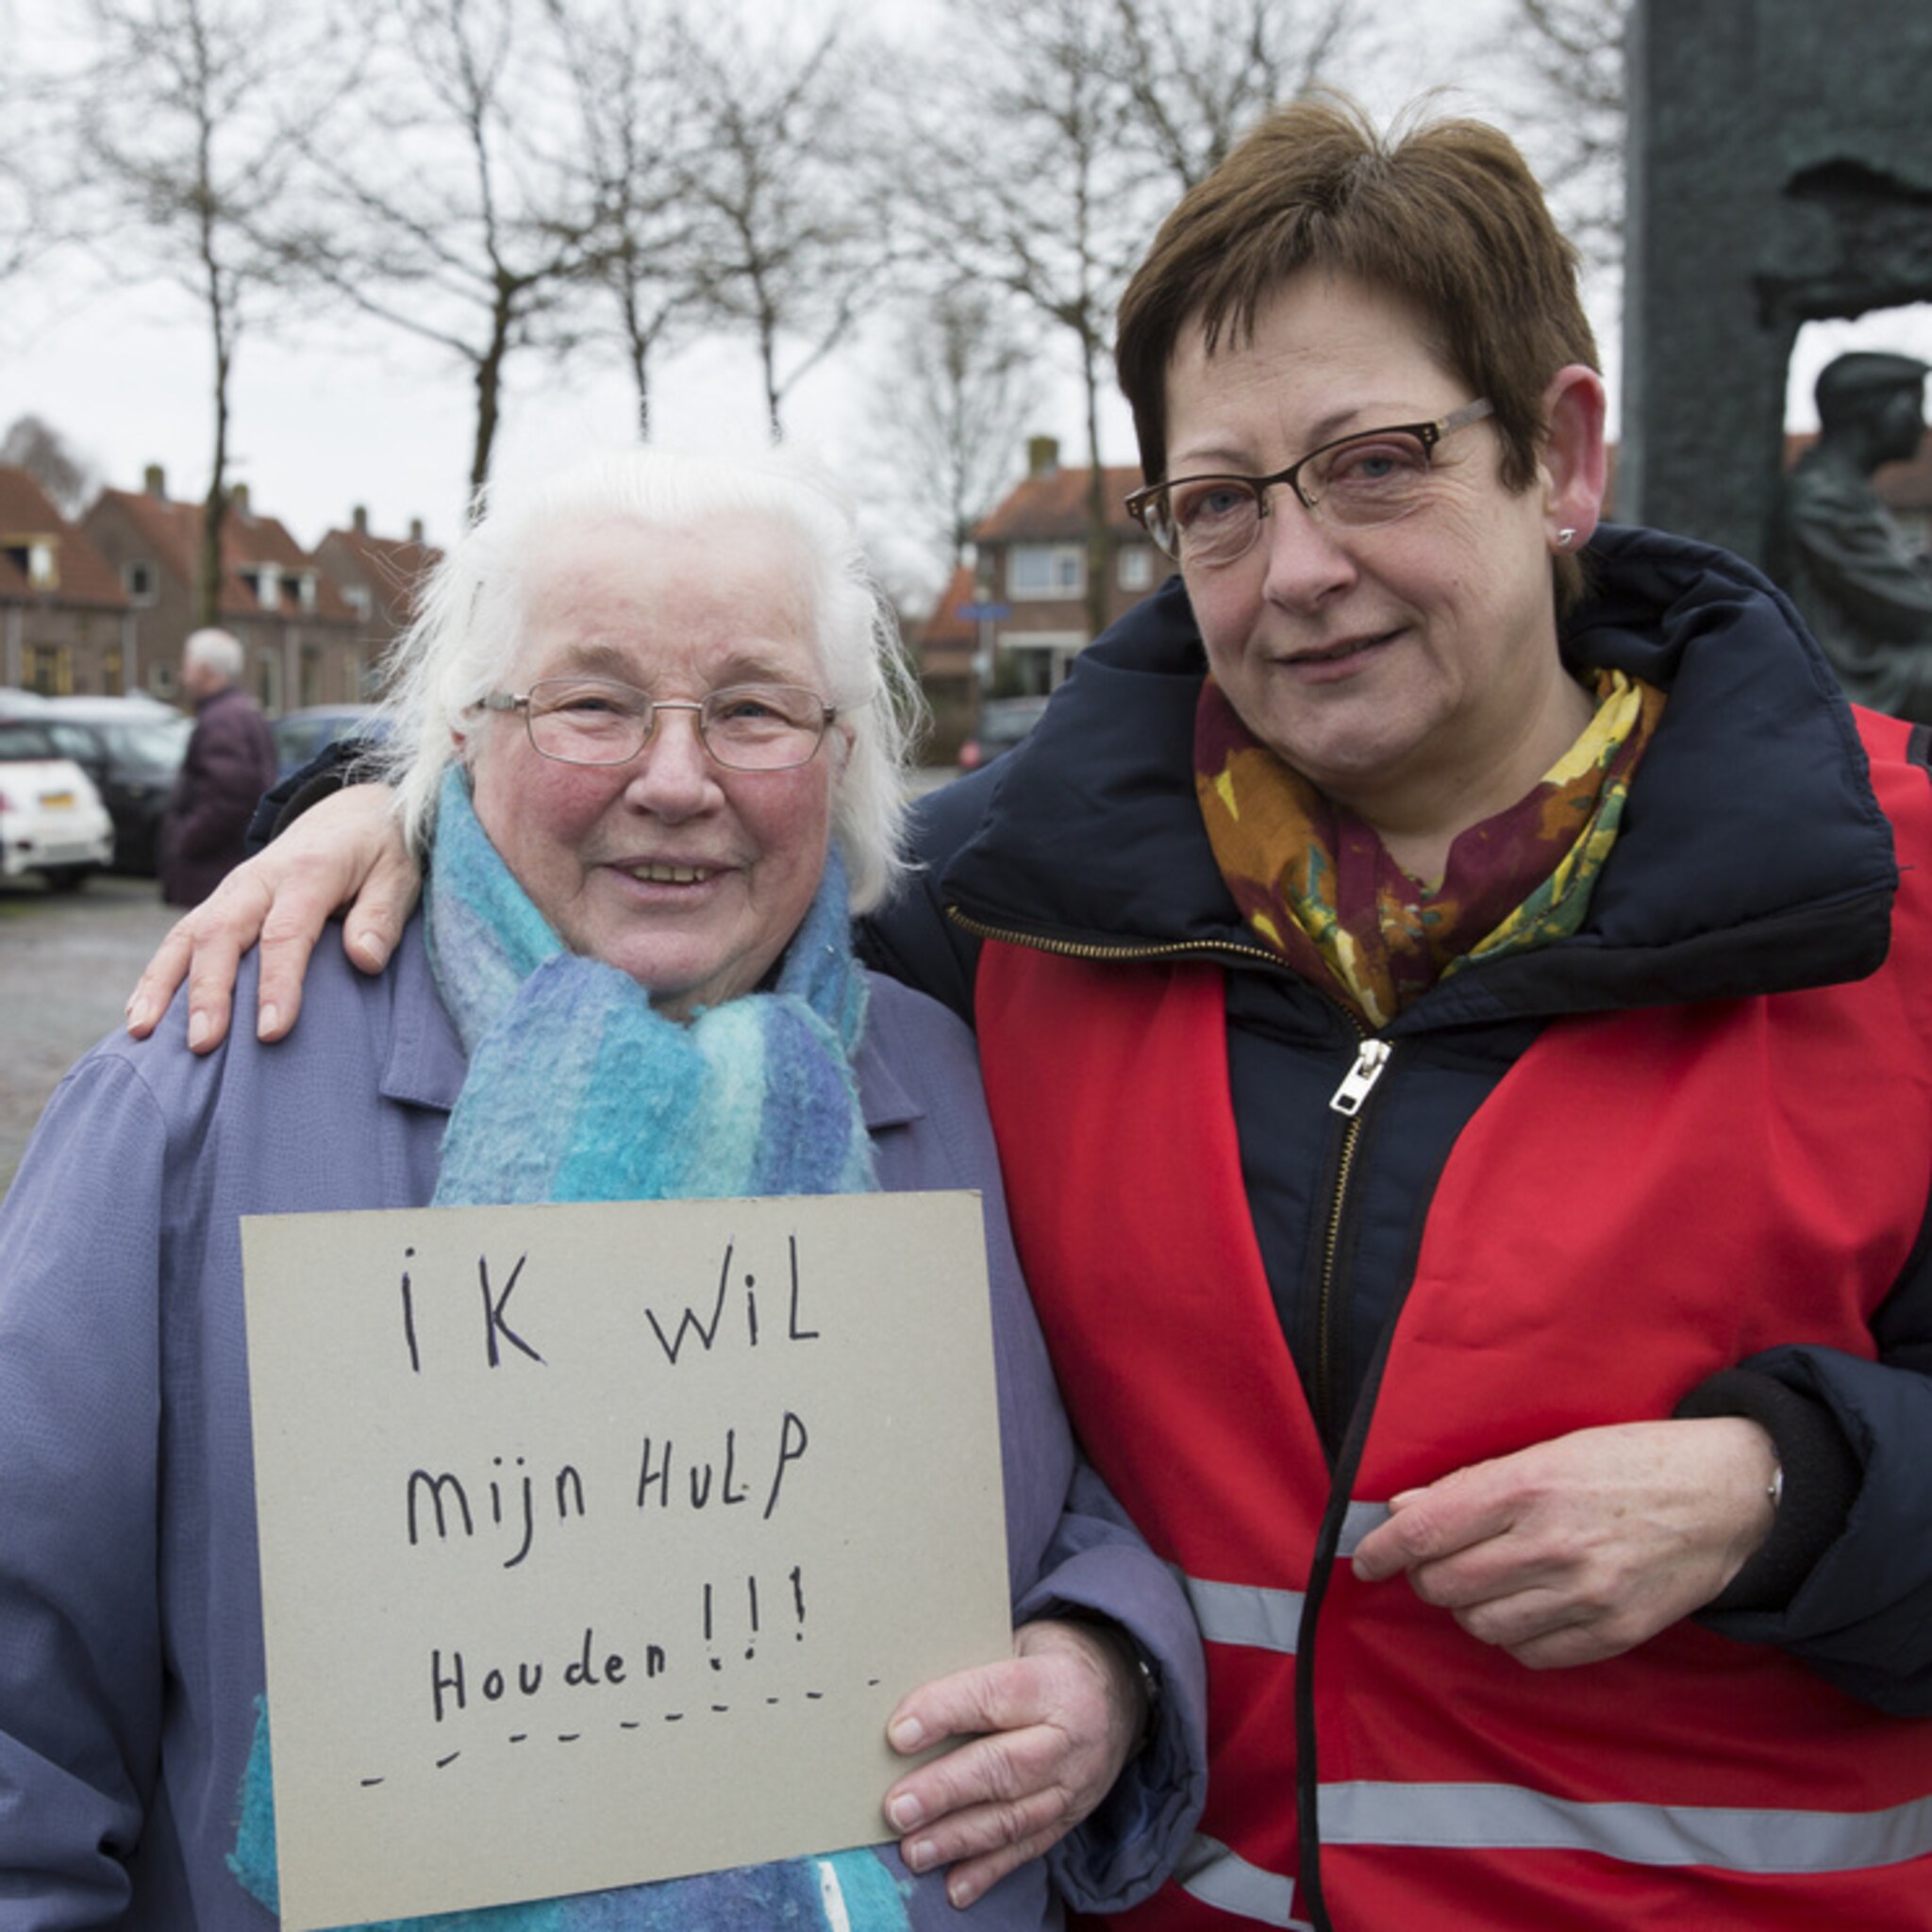 iK WiL
mijn HuLP
Houden!!!